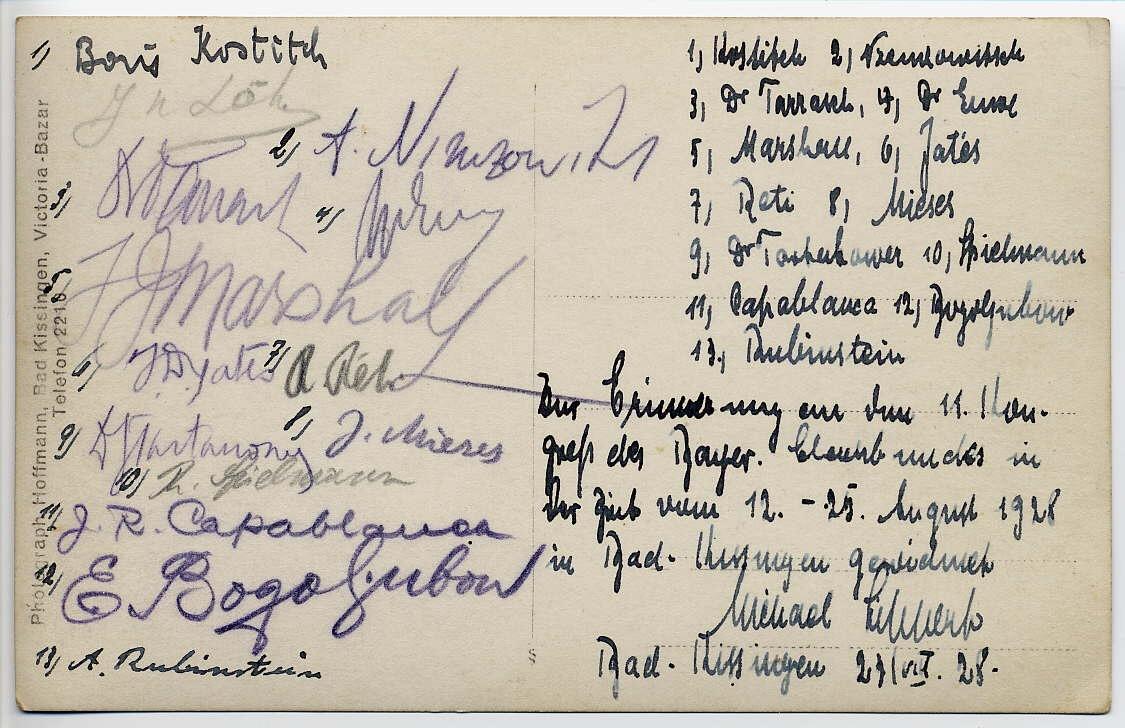 Photograph Hoffmann, Bad Kissingen, Victoria-Bazar
Telefon 2216
1) Boris Kostitch
2) A. Nimzowitsch
3)
4)
5) F J Marshall
6) F.D. Yates 7) R Réti
9) Dr Tartakower 8) J. Mieses
10) R. Spielmann
11) J. R. Capablanca
12) E Bogoljubow
13) A. Rubinstein
1) Kostitch 2) Niemzowitsch
3) Dr Tarrasch, 4) Dr Euwe
5) Marshall, 6) Jatés
7) Reti 8) Mieses
9) Dr Tartakower 10) Spielmann
11) Capablanca 12) Bogoljubow
13) Rubinstein
Zur Erinnerung an den 11. Kon-
greß des Bayer. in
der Zeit vom 12. - 25. August 1928
in Bad-Kissingen gewidmet
Michael
Bad-Kissingen 27/VIII. 28.